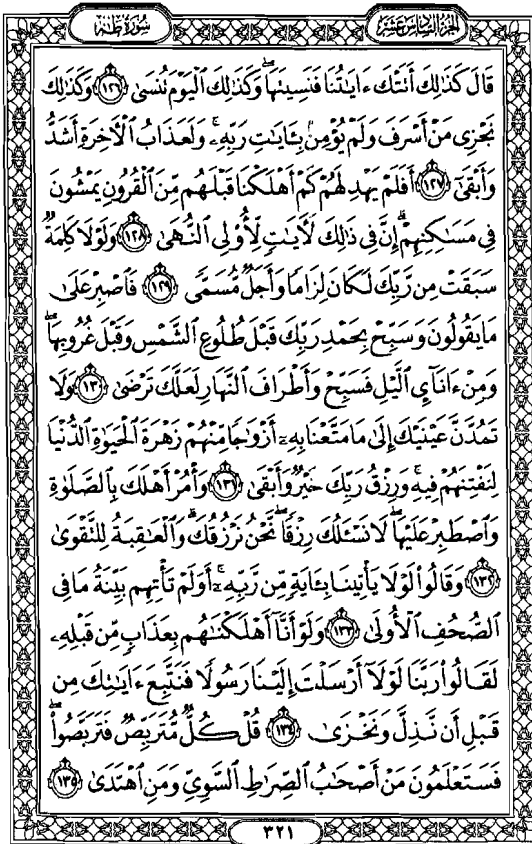 الجزء السادس عشر
سورة طه
قَالَ كَذَٰلِكَ أَتَتْكَ ءَايَٰتُنَا فَنَسِيتَهَا ۖ وَكَذَٰلِكَ ٱلْيَوْمَ تُنسَىٰ ١٢٦ وَكَذَٰلِكَ
نَجْزِى مَنْ أَسْرَفَ وَلَمْ يُؤْمِنۢ بِـَٔايَٰتِ رَبِّهِۦ ۚ وَلَعَذَابُ ٱلْأَخِرَةِ أَشَدُّ
وَأَبْقَىٰٓ ١٢٧ أَفَلَمْ يَهْدِ لَهُمْ كَمْ أَهْلَكْنَا قَبْلَهُم مِّنَ ٱلْقُرُونِ يَمْشُونَ
فِى مَسَٰكِنِهِمْ ۗ إِنَّ فِى ذَٰلِكَ لَأَيَٰتٍ لِّأُو۟لِى ٱلنُّهَىٰ ١٢٨ وَلَوْلَا كَلِمَةٌ
سَبَقَتْ مِن رَّبِّكَ لَكَانَ لِزَامًا وَأَجَلٌ مُّسَمًّى ١٢٩ فَٱصْبِرْ عَلَىٰ
مَا يَقُولُونَ وَسَبِّحْ بِحَمْدِ رَبِّكَ قَبْلَ طُلُوعِ ٱلشَّمْسِ وَقَبْلَ غُرُوبِهَا ۖ
وَمِنْ ءَانَآئِ ٱلَّيْلِ فَسَبِّحْ وَأَطْرَافَ ٱلنَّهَارِ لَعَلَّكَ تَرْضَىٰ ١٣٠ وَلَا
تَمُدَّنَّ عَيْنَيْكَ إِلَىٰ مَا مَتَّعْنَا بِهِۦٓ أَزْوَٰجًا مِّنْهُمْ زَهْرَةَ ٱلْحَيَوٰةِ ٱلدُّنْيَا
لِنَفْتِنَهُمْ فِيهِ ۚ وَرِزْقُ رَبِّكَ خَيْرٌ وَأَبْقَىٰ ١٣١ وَأْمُرْ أَهْلَكَ بِٱلصَّلَوٰةِ
وَٱصْطَبِرْ عَلَيْهَا ۖ لَا نَسْـَٔلُكَ رِزْقًا ۖ نَّحْنُ نَرْزُقُكَ ۗ وَٱلْعَٰقِبَةُ لِلتَّقْوَىٰ
١٣٢ وَقَالُوا۟ لَوْلَا يَأْتِينَا بِـَٔايَةٍ مِّن رَّبِّهِۦٓ ۚ أَوَلَمْ تَأْتِهِم بَيِّنَةُ مَا فِى
ٱلصُّحُفِ ٱلْأُولَىٰ ١٣٣ وَلَوْ أَنَّآ أَهْلَكْنَٰهُم بِعَذَابٍ مِّن قَبْلِهِۦ
لَقَالُوا۟ رَبَّنَا لَوْلَآ أَرْسَلْتَ إِلَيْنَا رَسُولًا فَنَتَّبِعَ ءَايَٰتِكَ مِن
قَبْلِ أَن نَّذِلَّ وَنَخْزَىٰ ١٣٤ قُلْ كُلٌّ مُّتَرَبِّصٌ فَتَرَبَّصُوا۟ ۖ
فَسَتَعْلَمُونَ مَنْ أَصْحَٰبُ ٱلصِّرَٰطِ ٱلسَّوِىِّ وَمَنِ ٱهْتَدَىٰ ١٣٥
٣٢١